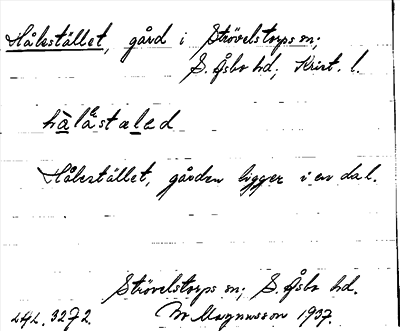 Hålestället, gård i Strövelstorps sn;
S. Åsbo hd; Krist. l.
Hålestället, gården ligger i en dal.
Strövelstorps sn; S. Åsbo hd.
3272. Magnusson 1937.